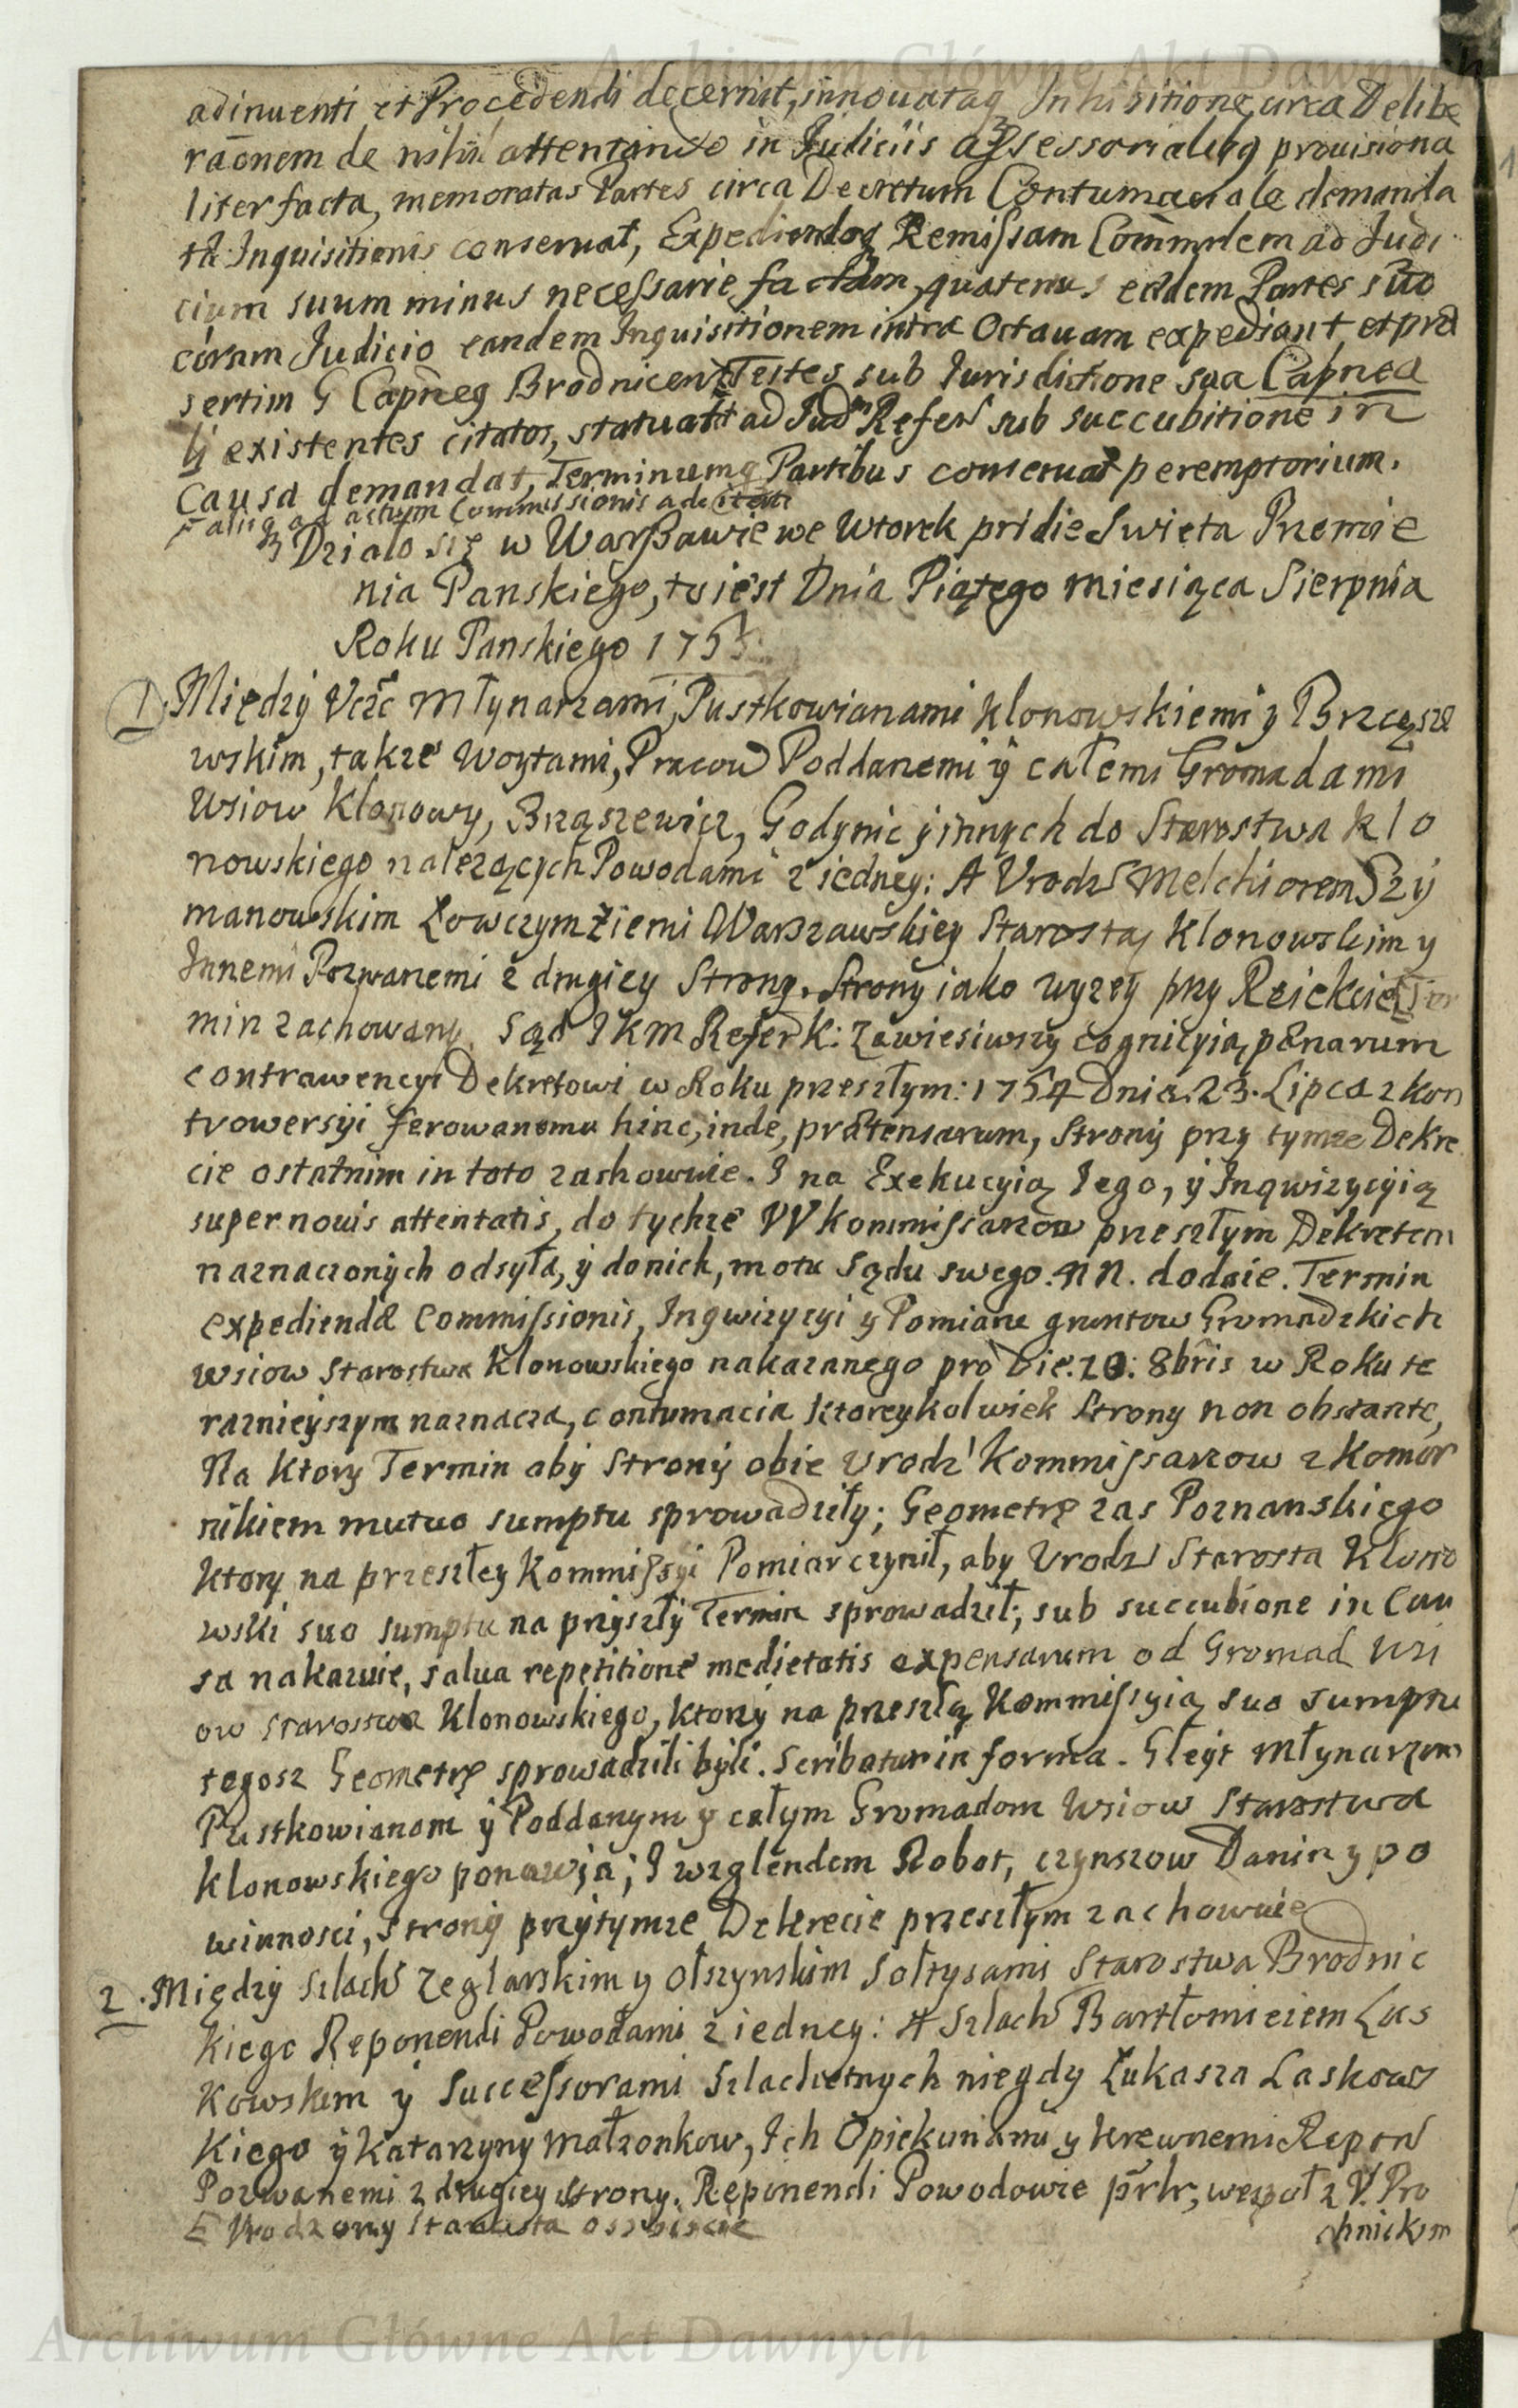 Archiwum Główne Akt Dawnych
adinventi et Procedendi decernit, innovataq Inhibitione circa Delibe
raonem de nihil attentando in Judiciis assessorialibq provisiona
liter facta, memoratas Partes circa Decretum Contumaciale demanda
ta Inquisitionis conservat, Expediendoq Remissam Commlem ad Judi
cium suum minus necessarie factam, quatenus eadem Partes suo
coram Judicio eandem Inquisitionem intra Octavam expediant, et præ
sertim G Capneq Brodnicen Testes sub Jurisdictione sua Capnea
li existentes citatos, statuat ad Jud Refer sub succubitione in
Causa demandat, Terminumq Partibus conservat peremptorium.
aliiq ad actum Commissionis
Działo się w Warszawie we Wtorek pridie Swięta Przemie
nia Panskiego, to iest Dnia Piątego Miesiąca Sierpnia
Roku Panskiego 175
1. Między Vczc Młynarzami, Pustkowianami Klonowskiemi y Brzęsze
wskim, także Woytami, Pracow Poddanemi ÿ całemi Gromadami
Wsiow Klonowy, Brząszewicz, Godynic y innych do Starostwa Klo
nowskiego należących Powodami z iedney: A Vrodz Melchiorem Szÿ
manowskim Łowczym Ziemi Warszawskiey Starostą Klonowskim y
Innemi Pozwanemi z drugiey Strony. Strony iako wyzey przy Reiekcie Ter
min zachowany. Sąd JKM Refer K: Zawiesiwszy cognicyią pænarum
contrawencyi Dekretowi w Roku przeszłym: 1754 Dnia. 23. Lipca z kon
trowersÿi ferowanemu hinc, inde, prætensarum, Stronÿ przy tymze Dekre
cie ostatnim in toto zachowuie. I na Exekucyią Jego, ÿ Inqwizycÿią
super novis attentatis, do tychze VV Kommissarzow przeszłym Dekretem
naznaczonÿch odsyła, ÿ do nich, motu Sądu swego. NN. dodaie. Termin
expediendæ Commissionis, Inqwizycyi y Pomiaru gruntow Gromadzkich
wsiow Starostwa Klonowskiego nakazanego pro Die. 20: 8bris w Roku te
raznieÿszym naznacza, contumacia ktoreykolwiek Strony non obstante,
Na ktory Termin abÿ Stronÿ obie Vrodz Kommissarzow z Komor
nikiem mutuo sumptu sprowadziły; Geometrę zas Poznanskiego
ktory na przeszłey Kommissÿi Pomiar czynił, aby Vrodz Starosta Klono
wski suo sumptu na przÿszłÿ Termin sprowadził; sub succubione in Cau
sa nakazuie, salva repetitione medietatis expensarum od Gromad Wsi
ow Starostwa Klonowskiego, ktorzÿ na przeszłą Kommissyią suo sumptu
tegosz Geometrę sprowadzili bÿli. Scribatur in forma. Gleyt Młynarzom
Pustkowianom ÿ Poddanym y całym Gromadom Wsiow Starostwa
Klonowskiego ponawia; I względem Robot, czynszow Danin y po
winnosci, Stronÿ przÿtymze Dekrecie przeszłym zachowuie
2. Między Szlach Zeglarskim y Olszynskim Sołtysami Starostwa Brodnic
kiego Reponendi Powodami z iedney: A Szlach Bartłomieiem Las
kowskim ÿ Successorami Szlachetnych niegdy Łukasza Laskows
kiego ÿ Katarzyny Małzonkow, Ich Opiekunami y krewnemi Repon
Pozwanemi z drugiey Strony. Reponendi Powodowie przhr, wespoł z V. Pro
chnickim
Vrodzony Starosta osobiscie
Archiwum Główne Akt Dawnych